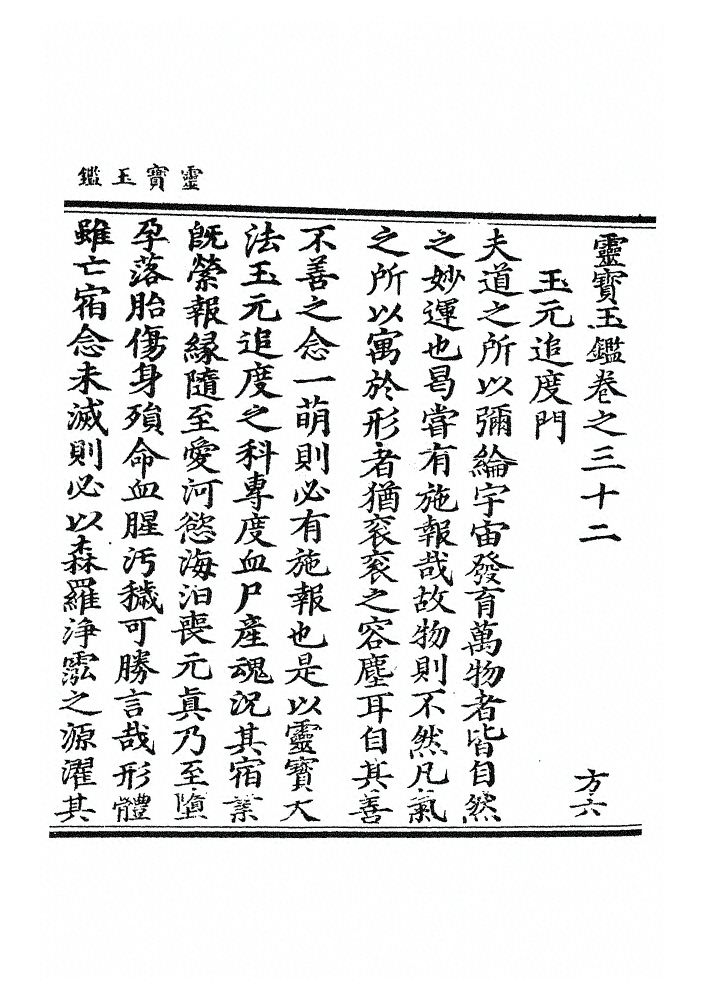 靈寶玉鑑
靈寶玉鑑卷之三十二 方六
玉元追度門
夫道之所以彌綸宇宙發育萬物者皆自然
之妙運也曷嘗有施報哉故物則不然凡氣
之所以寓於形者猶衮衮之容塵耳自其善
不善之念一萌則必有施報也是以靈寶大
法玉元追度之科專度血尸產魂況其宿業
既縈報緣隨至愛河慾海汩喪元真乃至墮
孕落胎傷身殞命血腥汚穢可勝言哉形體
雖亡宿念未滅則必以森羅淨泓之源濯其